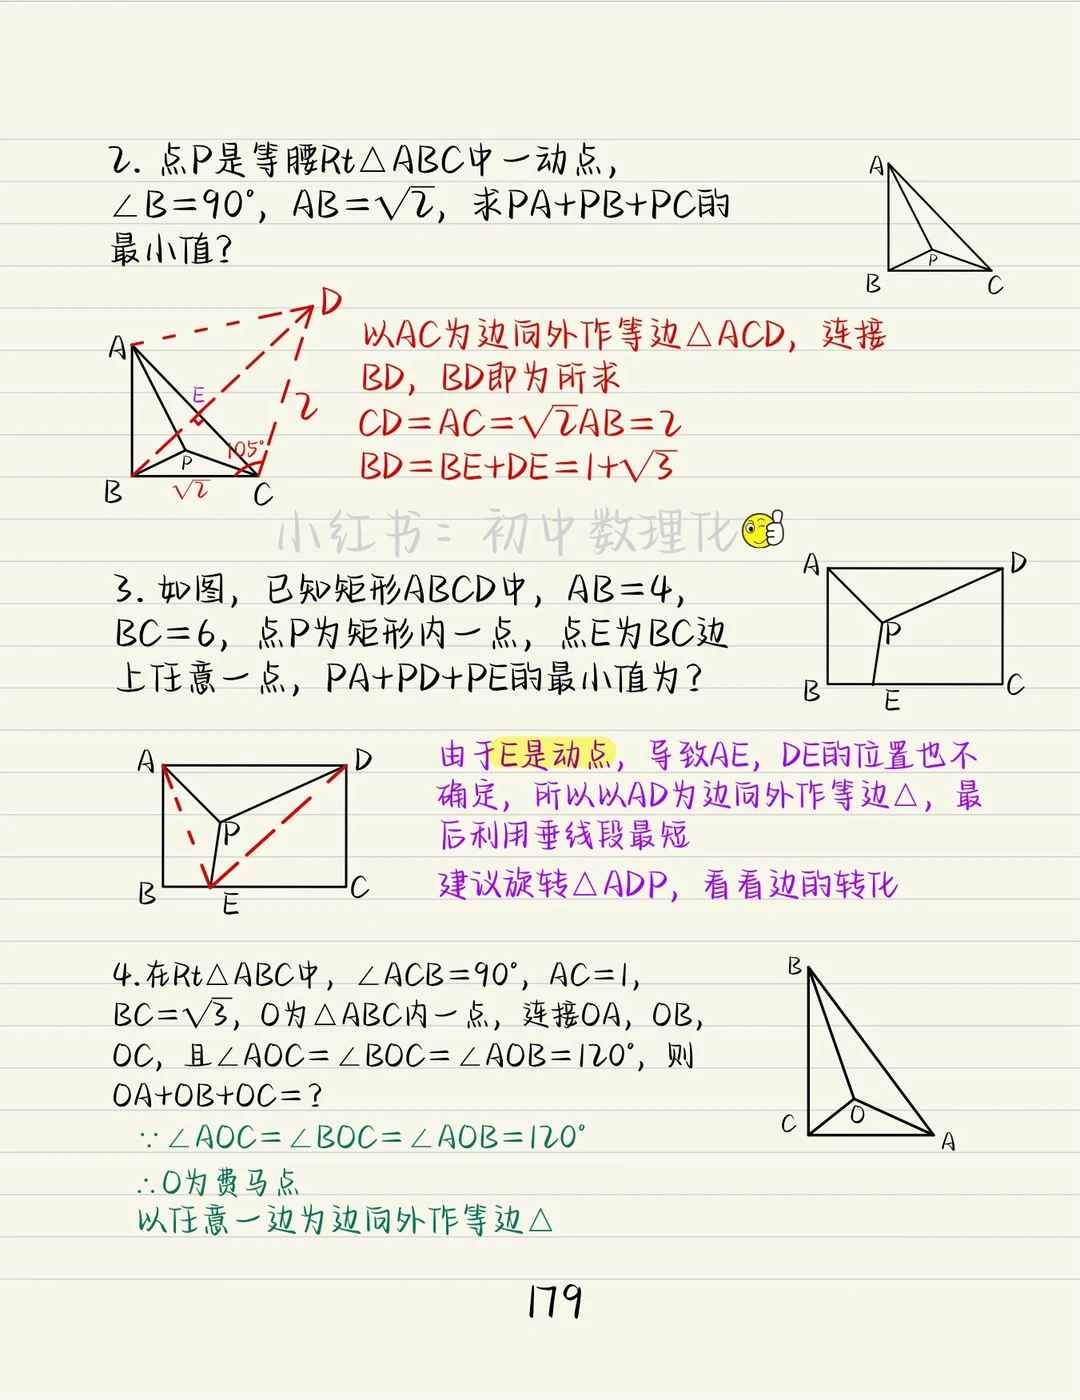 2. 点P是等腰Rt△ABC中一动点，
∠B=90°，AB=√2，求PA+PB+PC的
最小值？
A
B
P
C
D
A
E
2
105°
P
B
√2
C
以AC为边向外作等边△ACD，连接
BD，BD即为所求
CD=AC=√2AB=2
BD=BE+DE=1+√3
小红书：初中数理化
3. 如图，已知矩形ABCD中，AB=4，
BC=6，点P为矩形内一点，点E为BC边
上任意一点，PA+PD+PE的最小值为？
A
D
P
B
E
C
A
D
P
B
E
C
由于E是动点，导致AE，DE的位置也不
确定，所以以AD为边向外作等边△，最
后利用垂线段最短
建议旋转△ADP，看看边的转化
4.在Rt△ABC中，∠ACB=90°，AC=1，
BC=√3，O为△ABC内一点，连接OA，OB，
OC，且∠AOC=∠BOC=∠AOB=120°，则
OA+OB+OC=？
B
C
O
A
∵∠AOC=∠BOC=∠AOB=120°
∴O为费马点
以任意一边为边向外作等边△
179